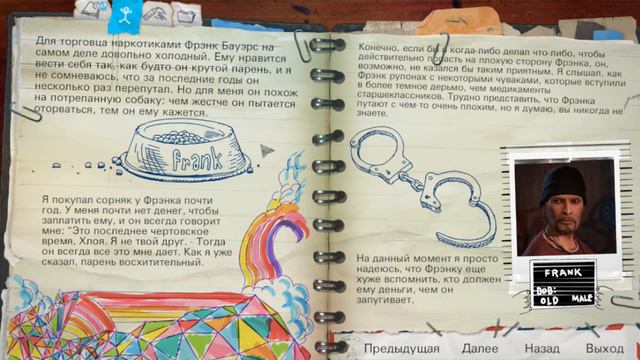 Для торговца наркотиками Фрэнк Бауэрс на
самом деле довольно холодный. Ему нравится
вести себя так, как будто он крутой парень, и я
не сомневаюсь, что за последние годы он
несколько раз перепутал. Но для меня он похож
на потрепанную собаку: чем жестче он пытается
оторваться, тем он ему кажется.
Frank
Я покупал сорняк у Фрэнка почти
год. У меня почти нет денег, чтобы
заплатить ему, и он всегда говорит
мне: "Это последнее чертовское
время, Хлоя. Я не твой друг. - Тогда
он всегда все это мне дает. Как я уже
сказал, парень восхитительный.
Конечно, если бы я когда-либо делал что-либо, чтобы
действительно попасть на плохую сторону Фрэнка, он,
возможно, не казался бы таким приятным. Я слышал, как
Фрэнк рулонах с некоторыми чуваками, которые вступили
в более темное дерьмо, чем медикаменты
старшеклассников. Трудно представить, что Фрэнка
путают с чем-то очень плохим, но я думаю, вы никогда не
знаете.
На данный момент я просто
надеюсь, что Фрэнку еще
хуже вспомнить, кто должен
ему деньги, чем он
запугивает.
FRANK
DOB:
OLD MALE
Предыдущая Далее Назад Выход